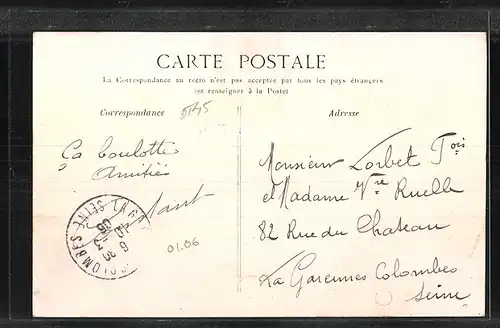 CARTE POSTALE
La Correspondance au recto n'est pas acceptée par tous les pays étrangers
(se renseigner à la Poste)
Correspondance
5145
Adresse
Ça boulotte
Amitiés
Monsieur Lorbet Fois
et Madame Vve Ruelle
82 Rue du Chateau
La Garennes Colombes
Seine
COLOMBES
SEINE
01.06